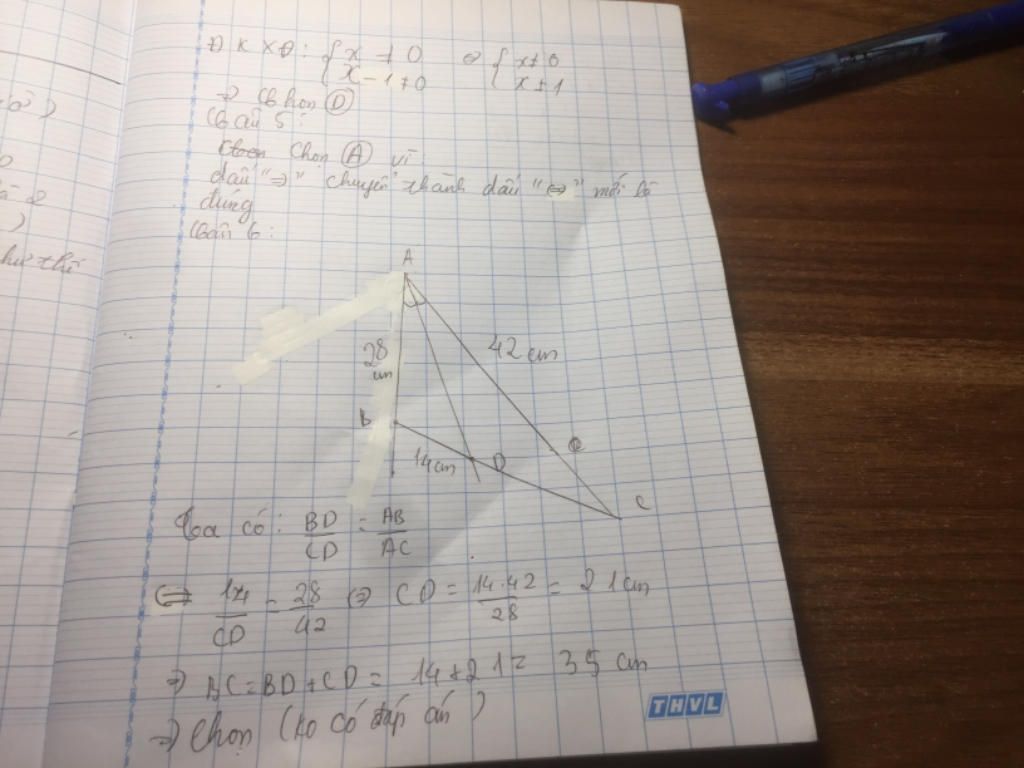 ĐKXĐ: { x ≠ 0 ⇔ { x ≠ 0
x - 1 ≠ 0 x ≠ 1
⇒ Chọn D
Câu 5:
Chọn A vì
dấu "⇒" chuyển thành dấu "⇔" mới là
đúng
Câu 6:
A
28 cm
42 cm
B
14 cm
D
C
Ta có: BD/CD = AB/AC
⇔ 14/CD = 28/42 ⇒ CD = 14.42/28 = 21 cm
⇒ BC = BD + CD = 14 + 21 = 35 cm
THVL
⇒ Chọn (ko có đáp án)